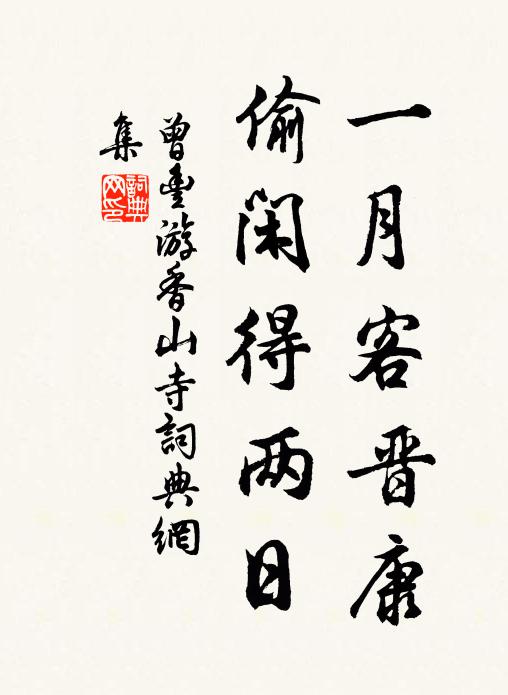 一月客晋康
偷闲得两日
曾豊游香山寺詞典網
集
詞典
网印